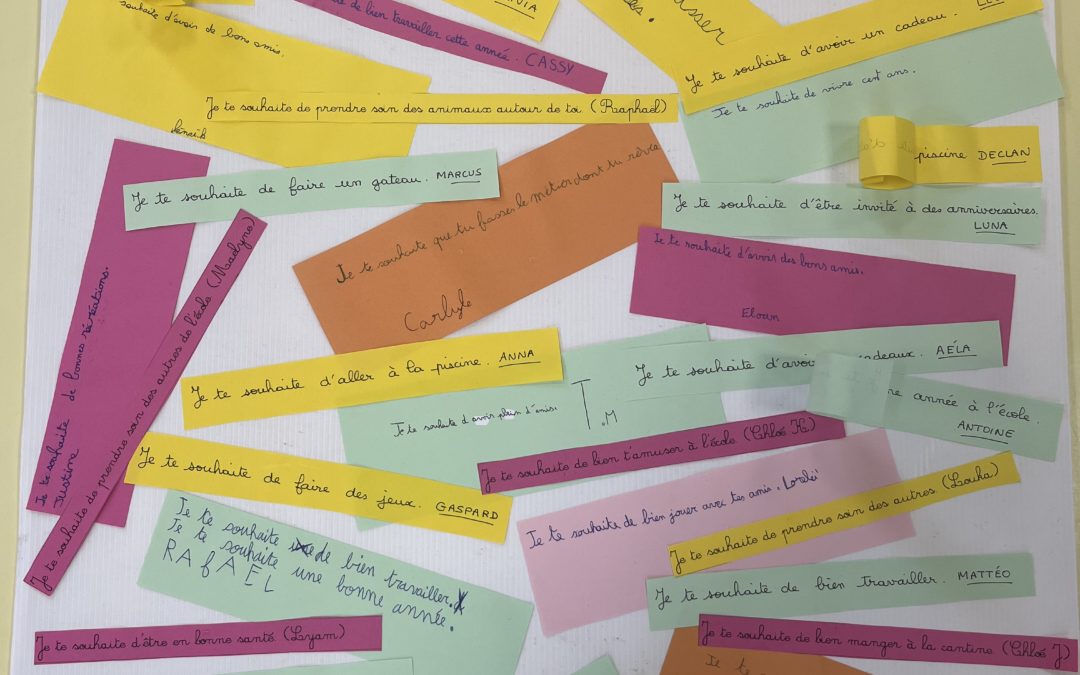 souhaite d'avoir de bons amis.
de bien travailler cette année. CASSY
Je te souhaite d'avoir un cadeau.
Je te souhaite de vivre cent ans.
Je te souhaite de prendre soin des animaux autour de toi (Raphaël)
piscine DECLAN
Je te souhaite de faire un gateau. MARCUS
Je te souhaite que tu fasses le métier dont tu rêve
Carlyle
Je te souhaite d'être invité à des anniversaires.
LUNA
Je te souhaite d'avoir des bons amis.
Eloan
Je te souhaite de bonnes récréations.
Justine
Je te souhaite de prendre soin des autres de l'école (Maelyne)
Je te souhaite d'aller à la piscine. ANNA
Je te souhaite d'avoir plein d'amis.
T.M
Je te souhaite d'avoi deaux. AÉLA
ne année à l'école.
ANTOINE
Je te souhaite de bien t'amuser à l'école (Chloé K)
Je te souhaite de faire des jeux. GASPARD
Je te souhaite de bien jouer avec tes amis. Loreleï
Je te souhaite de prendre soin des autres (Louka)
Je te souhaite de bien travailler.
Je te souhaite une bonne année.
RAfAEL
Je te souhaite de bien travailler. MATTÉO
Je te souhaite d'être en bonne santé (Lyam)
Je te souhaite de bien manger à la cantine (Chloé J)
Je te